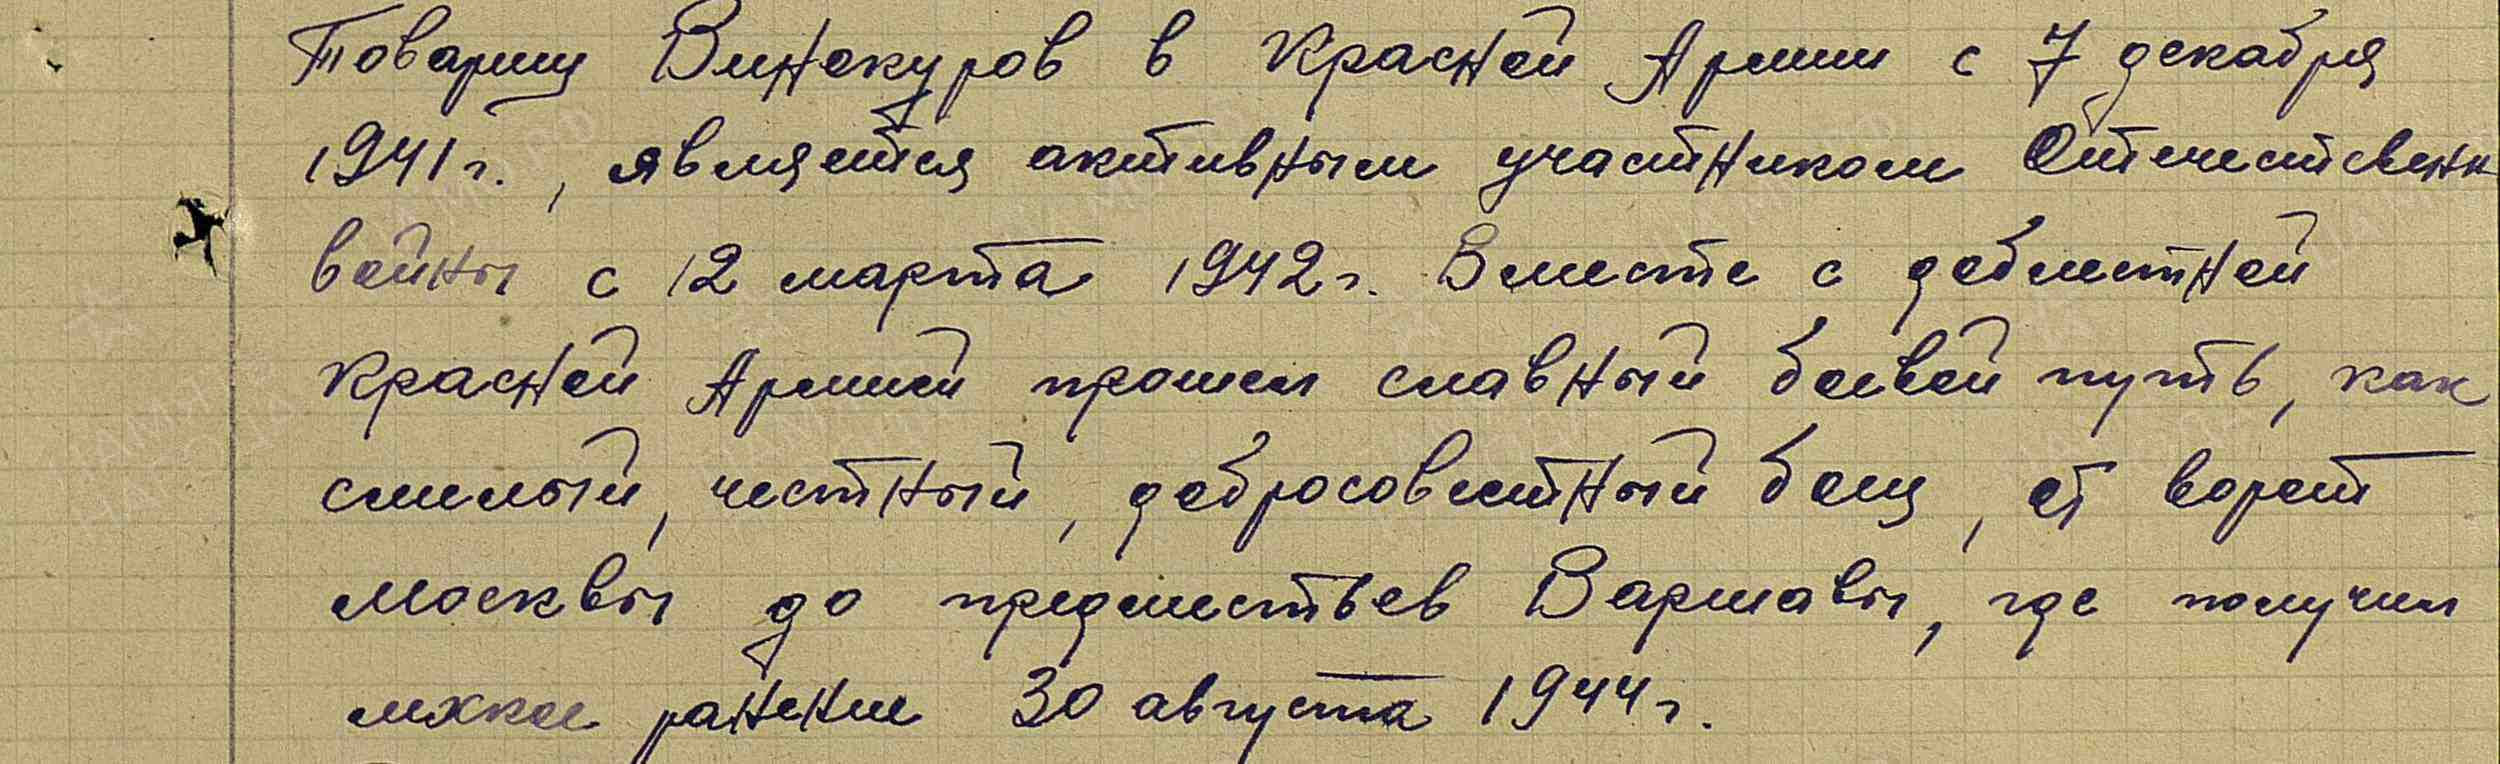 Товарищ Винокуров в Красной Армии с 7 декабря
1941 г., является активным участником Отечественн
войны с 12 марта 1942 г. Вместе с доблестной
Красной Армией прошел славный боевой путь, как
смелый, честный, добросовестный боец, от ворот
Москвы до предместьев Варшавы, где получил
легкое ранение 30 августа 1944 г.